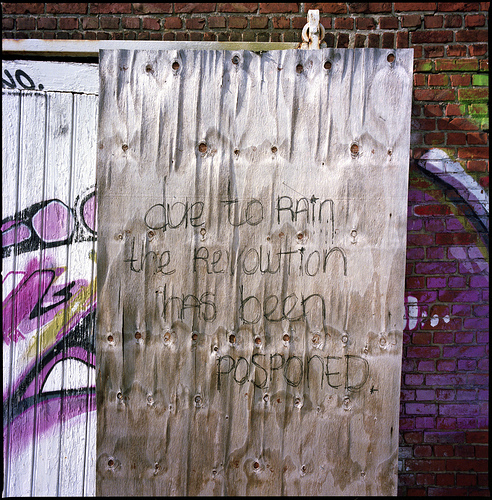 NO.
due to RAin
the Revolution
has been
POSPONED.